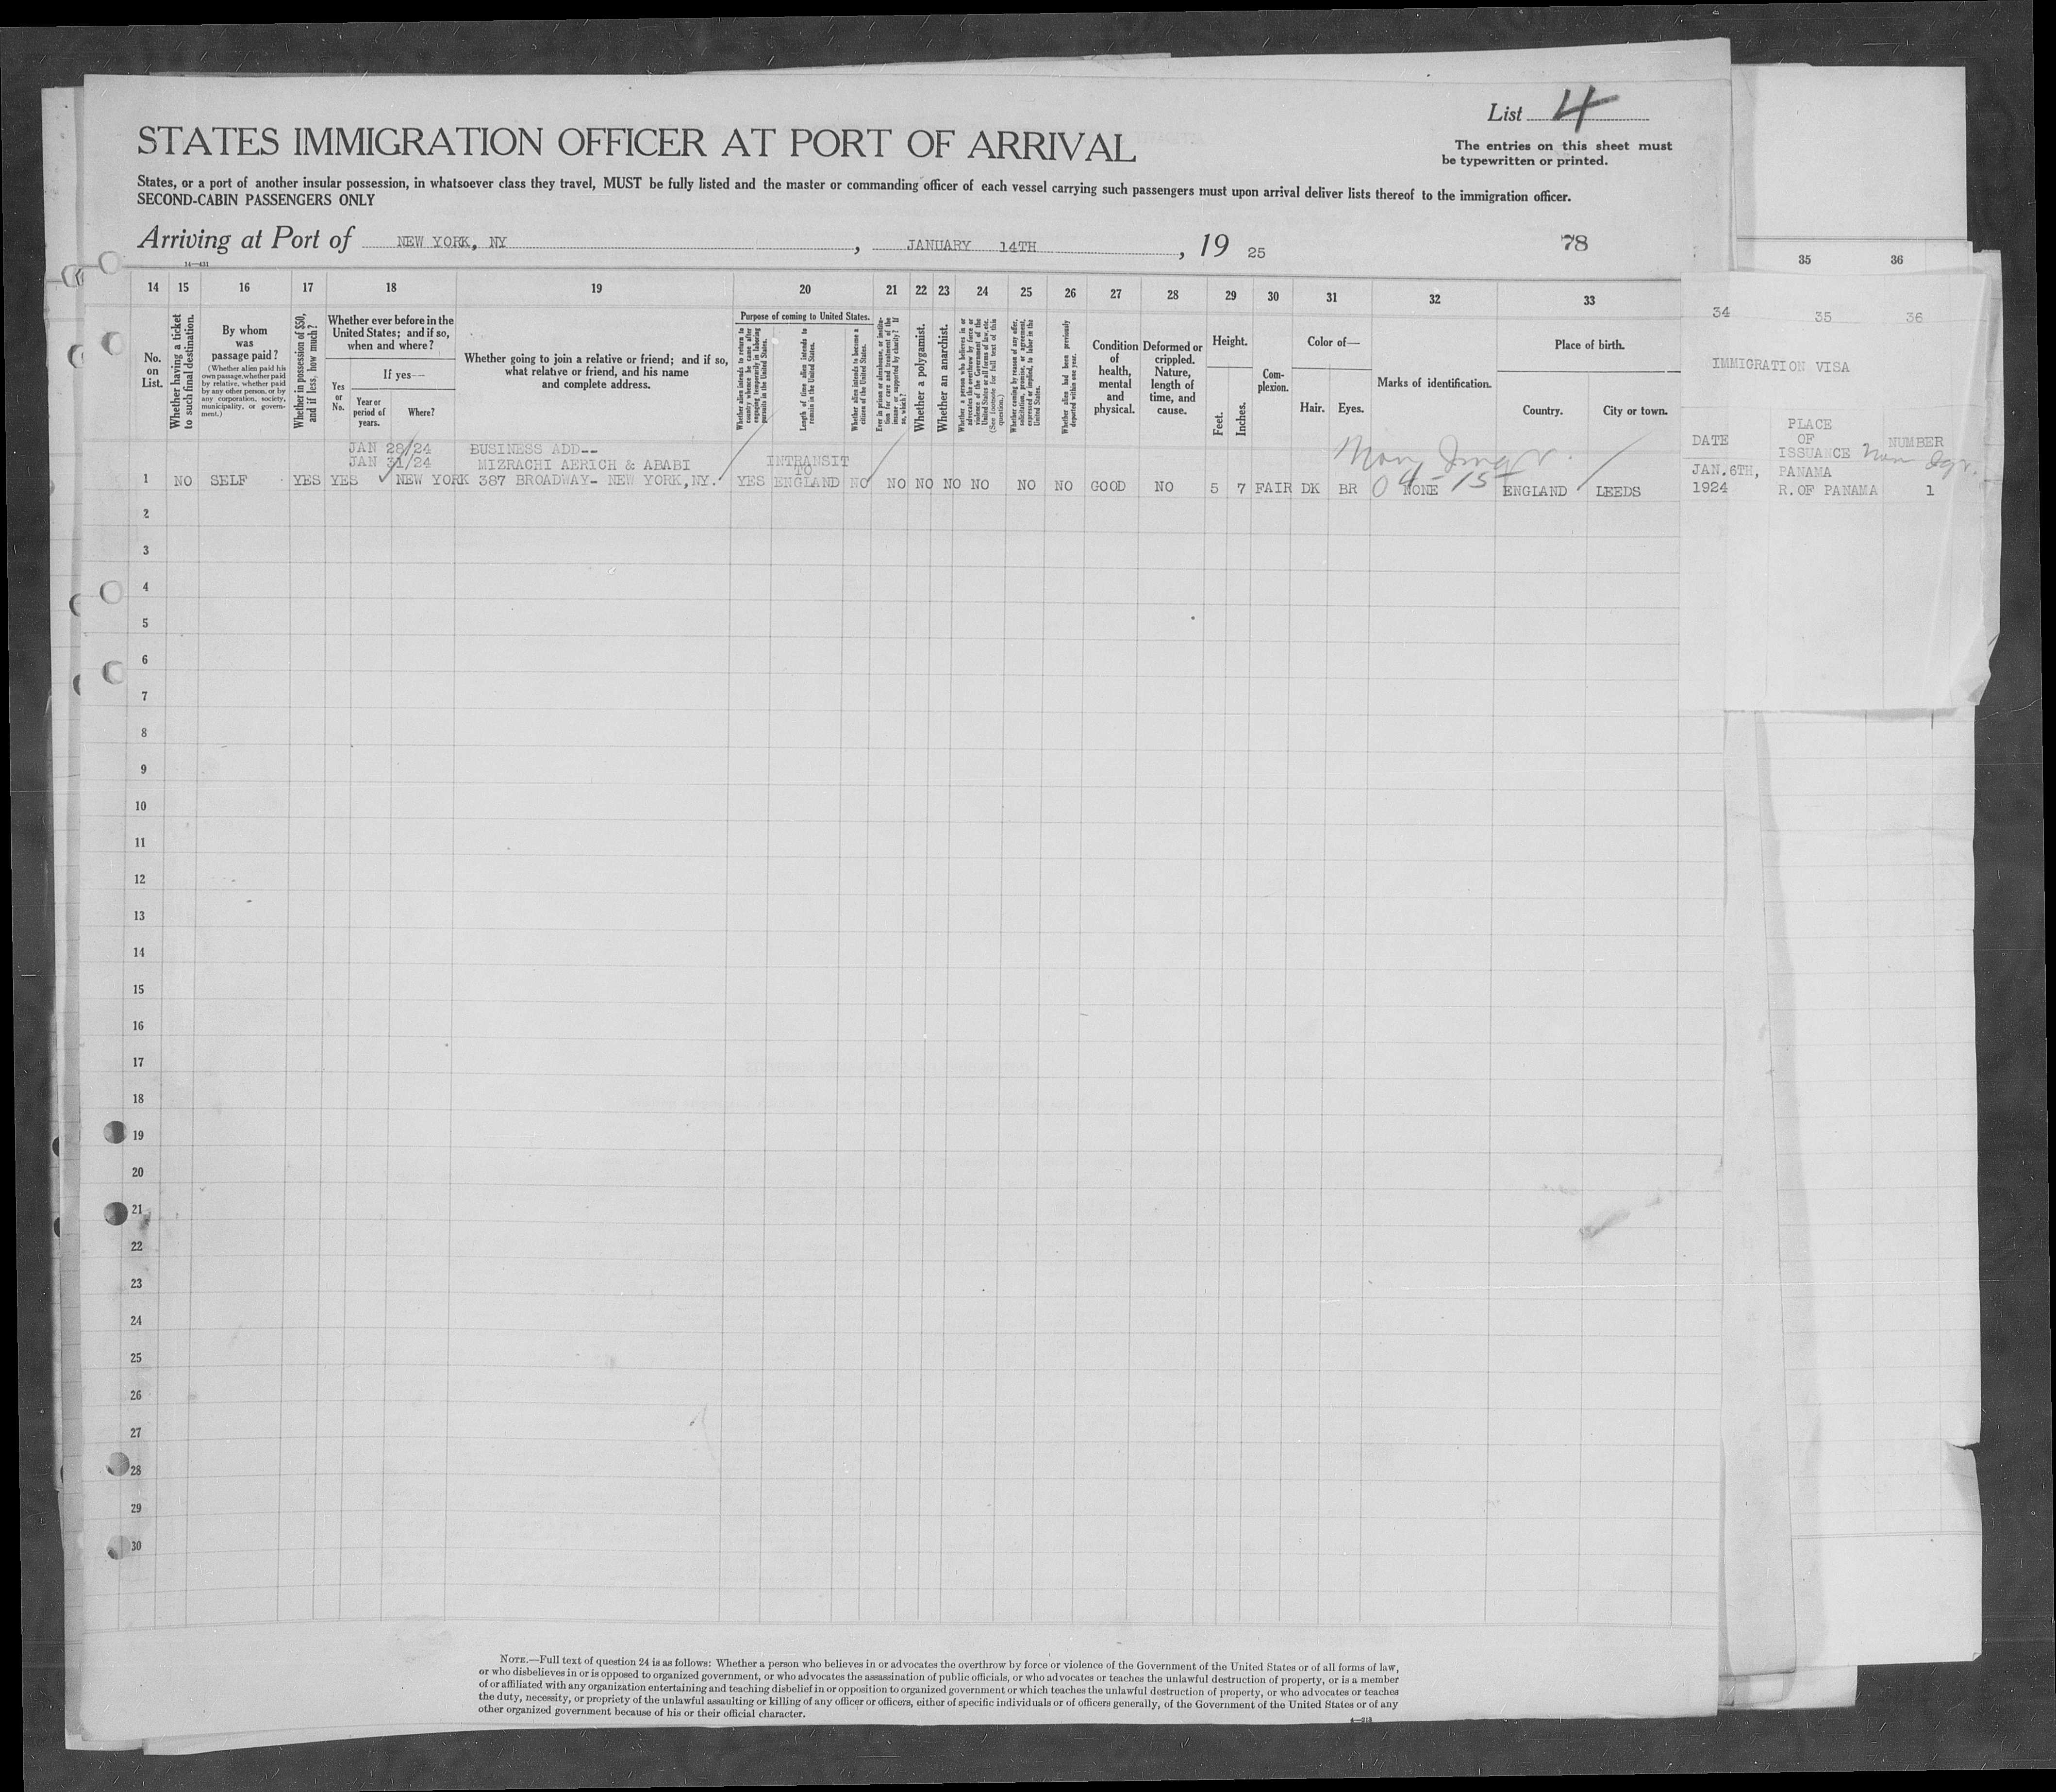 List 4
The entries on this sheet must
be typewritten or printed.
STATES IMMIGRATION OFFICER AT PORT OF ARRIVAL
States, or a port of another insular possession, in whatsoever class they travel, MUST be fully listed and the master or commanding officer of each vessel carrying such passengers must upon arrival deliver lists thereof to the immigration officer.
SECOND-CABIN PASSENGERS ONLY
Arriving at Port of NEW YORK, NY, JANUARY 14TH, 19 25
78
14—431
14 15 16 17 18 19 20 21 22 23 24 25 26 27 28 29 30 31 32 33
35 36
34 35 36
No. on List.
Whether having a ticket to such final destination.
By whom was passage paid?
(Whether alien paid his own passage, whether paid by relative, whether paid by any other person, or by any corporation, society, municipality, or government.)
Whether in possession of $50, and if less, how much?
Whether ever before in the United States; and if so, when and where?
Yes or No.
If yes—
Year or period of years.
Where?
Whether going to join a relative or friend; and if so, what relative or friend, and his name and complete address.
Purpose of coming to United States.
Whether alien intends to return to country whence he came after engaging temporarily in laboring pursuits in the United States.
Length of time alien intends to remain in the United States.
Whether alien intends to become a citizen of the United States.
Ever in prison or almshouse, or institution for care and treatment of the insane or supported by charity? If so, which?
Whether a polygamist.
Whether an anarchist.
Whether a person who believes in or advocates the overthrow by force or violence of the Government of the United States or all forms of law, etc. (See footnote for full text of this question.)
Whether coming by reason of any offer, solicitation, promise, or agreement, expressed or implied, to labor in the United States.
Whether alien had been previously deported within one year.
Condition of health, mental and physical.
Deformed or crippled. Nature, length of time, and cause.
Height.
Feet.
Inches.
Complexion.
Color of—
Hair.
Eyes.
Marks of identification.
Place of birth.
Country.
City or town.
IMMIGRATION VISA
DATE
PLACE OF ISSUANCE
NUMBER
JAN 28/24
JAN 31/24
BUSINESS ADD--
MIZRACHI AERICH & ABABI
INTRANSIT TO
1 NO SELF YES YES NEW YORK 387 BROADWAY- NEW YORK, NY. YES ENGLAND NO NO NO NO NO NO NO GOOD NO 5 7 FAIR DK BR NONE ENGLAND LEEDS
JAN. 6TH, 1924
PANAMA R. OF PANAMA
1
2
3
4
5
6
7
8
9
10
11
12
13
14
15
16
17
18
19
20
21
22
23
24
25
26
27
28
29
30
NOTE.—Full text of question 24 is as follows: Whether a person who believes in or advocates the overthrow by force or violence of the Government of the United States or of all forms of law,
or who disbelieves in or is opposed to organized government, or who advocates the assassination of public officials, or who advocates or teaches the unlawful destruction of property, or is a member
of or affiliated with any organization entertaining and teaching disbelief in or opposition to organized government or which teaches the unlawful destruction of property, or who advocates or teaches
the duty, necessity, or propriety of the unlawful assaulting or killing of any officer or officers, either of specific individuals or of officers generally, of the Government of the United States or of any
other organized government because of his or their official character.